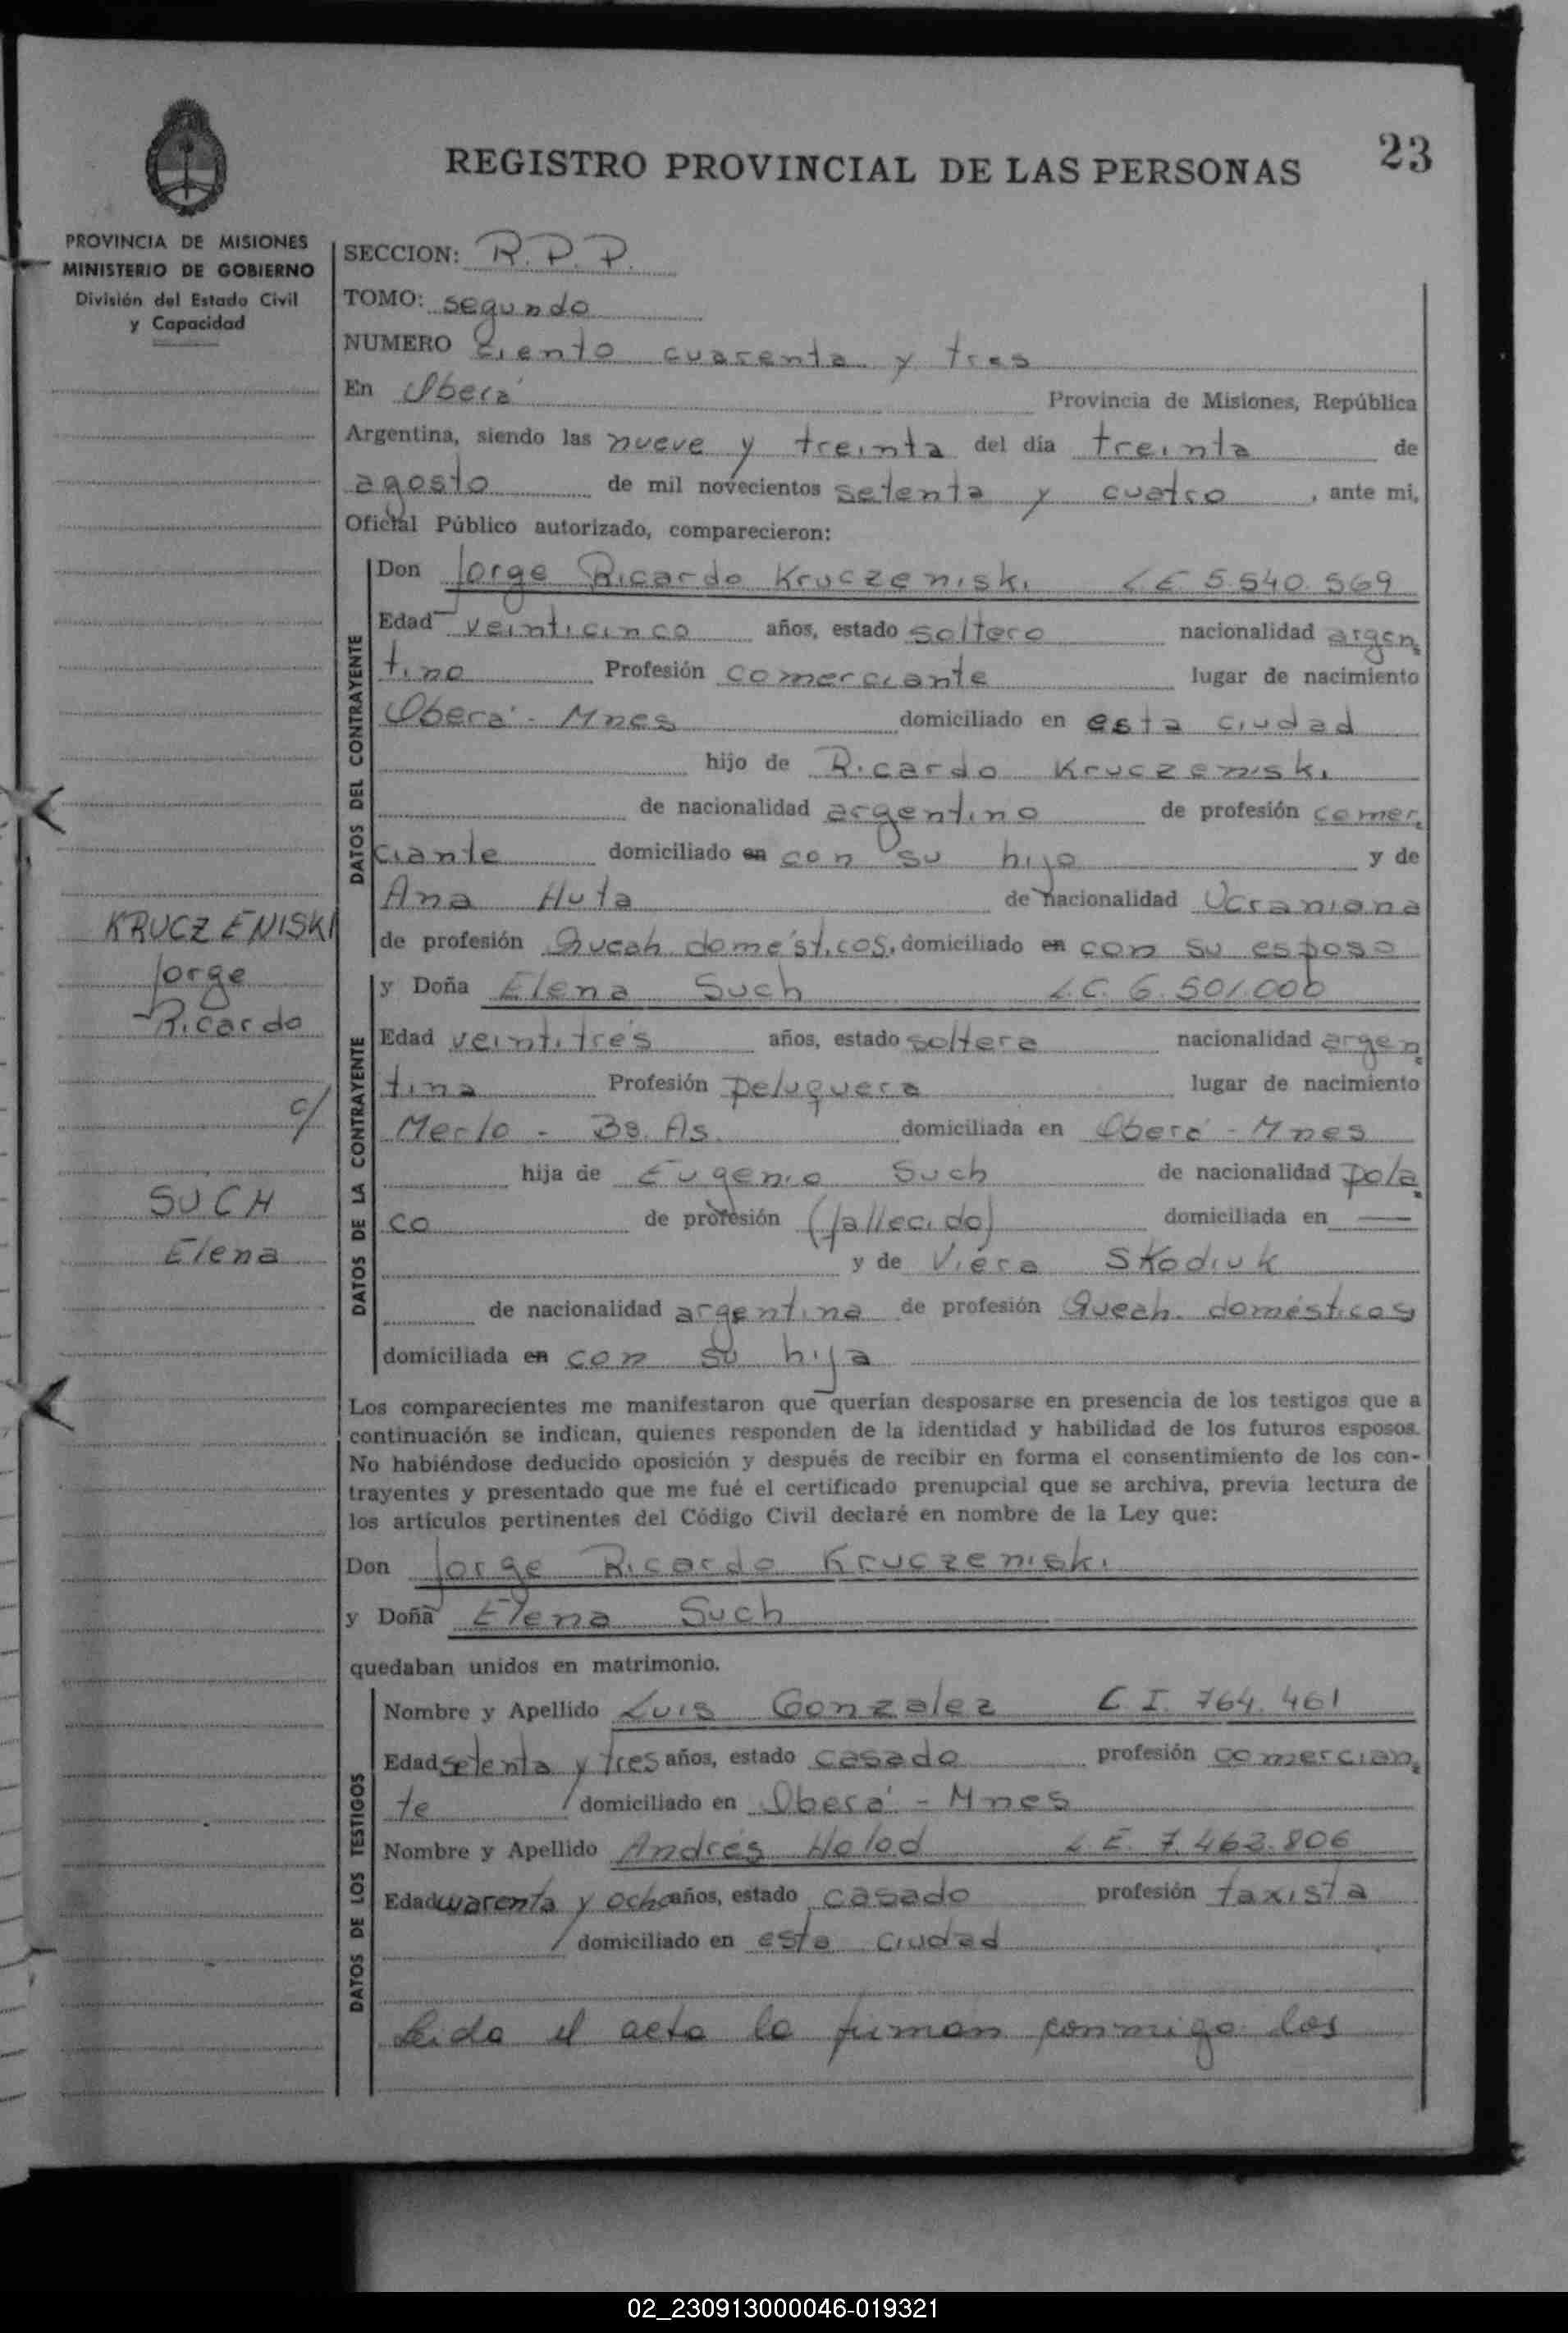 23
REGISTRO PROVINCIAL DE LAS PERSONAS
PROVINCIA DE MISIONES
MINISTERIO DE GOBIERNO
División del Estado Civil
y Capacidad
SECCION: R.P.P.
TOMO: segundo
NUMERO Ciento cuarenta y tres
En Oberá Provincia de Misiones, República
Argentina, siendo las nueve y treinta del día treinta de
agosto de mil novecientos setenta y cuatro, ante mi,
Oficial Público autorizado, comparecieron:
DATOS DEL CONTRAYENTE
Don Jorge Ricardo Kruczeniski L E 5.540.569
Edad veinticinco años, estado soltero nacionalidad argen
tino Profesión comerciante lugar de nacimiento
Oberá - Mnes domiciliado en esta ciudad
hijo de Ricardo Kruczeniski
de nacionalidad argentino de profesión comer
ciante domiciliado en con su hijo y de
Ana Huta de nacionalidad Ucraniana
de profesión Queah. domésticos, domiciliado en con su esposo
KRUCZENISKI
Jorge
Ricardo
c/
SUCH
Elena
DATOS DE LA CONTRAYENTE
y Doña Elena Such L.C. 6.501.000
Edad veintitrés años, estado soltera nacionalidad argen
tina Profesión peluquera lugar de nacimiento
Merlo - Bs. As. domiciliada en Oberá - Mnes
hija de Eugenio Such de nacionalidad pola
co de profesión (fallecido) domiciliada en —
y de Viera Skodiuk
de nacionalidad argentina de profesión Queah. domésticos
domiciliada en con su hija
Los comparecientes me manifestaron que querían desposarse en presencia de los testigos que a
continuación se indican, quienes responden de la identidad y habilidad de los futuros esposos.
No habiéndose deducido oposición y después de recibir en forma el consentimiento de los con-
trayentes y presentado que me fué el certificado prenupcial que se archiva, previa lectura de
los artículos pertinentes del Código Civil declaré en nombre de la Ley que:
Don Jorge Ricardo Kruczeniski
y Doña Elena Such
quedaban unidos en matrimonio.
DATOS DE LOS TESTIGOS
Nombre y Apellido Luis Gonzalez C I. 764.461
Edad setenta y tres años, estado casado profesión comercian
te / domiciliado en Oberá - Mnes
Nombre y Apellido Andrés Holod L.E. 7.462.806
Edad cuarenta y ocho años, estado casado profesión taxista
/ domiciliado en esta ciudad
Leida el acta la firman conmigo los
02_230913000046-019321